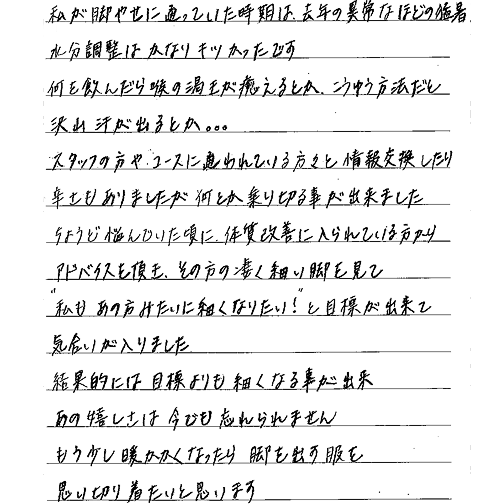 私が脚やせに通っていた時期は、去年の異常なほどの猛暑
水分調整はかなりキツかったです
何を飲んだら喉の渇きが癒えるとか、こうゆう方法だと
沢山汗が出るとか。。。
スタッフの方や、コースに通われている方々と情報交換したり
辛さもありましたが何とか乗り切る事が出来ました
ちょうど悩んでいた頃に、体質改善に入られている方から
アドバイスを頂き、その方の凄く細い脚を見て
"私もあの方みたいに細くなりたい!"と目標が出来て
気合いが入りました
結果的には目標よりも細くなる事が出来
あの嬉しさは今でも忘れられません
もう少し暖かくなったら脚を出す服を
思い切り着たいと思います